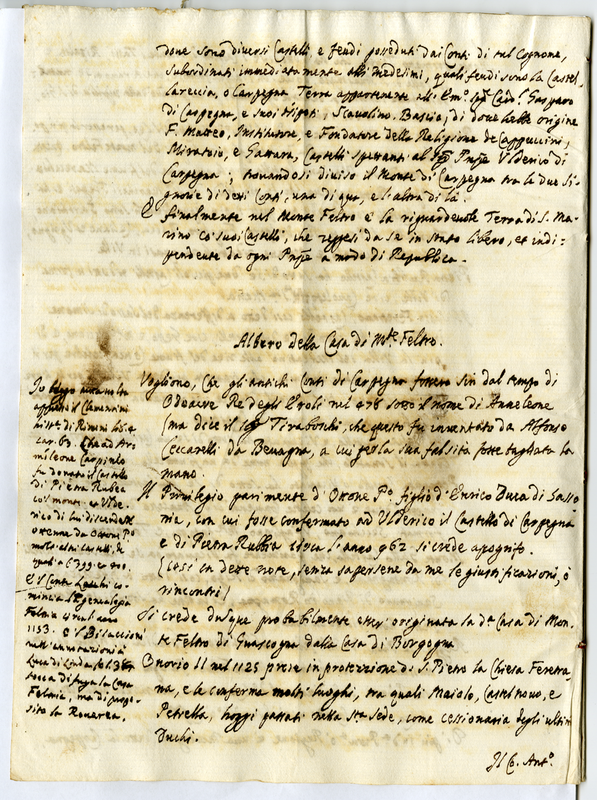 doue sono diuersi Castelli, e feudi posseduti dai Conti di tal Cognome,
subordinati immediatamente alli medesimi, quali feudi sono la Castel
laccia, o Carpegna Terra appartenente all' Em.º Sig.r Card.l Gasparo
di Carpegna, e suoi Nipoti, Scauolino, Bascio, di doue hebbe origine
F. Matteo, Institutore, e Fondatore della Religione de Cappuccini,
Miratoio, e Gattara, Castelli spettanti al Pnpe Vlderico di
Carpegna; trouandosi diuiso il Monte di Carpegna tra le due Si-
gnorie di detti Conti, una di qua, e l'altra di là.
E finalmente nel Monte Feltro è la riguardeuole Terra di S. Ma-
rino co' suoi Castelli, che reggesi da se in stato libero, et indi-
pendente da ogni Pnpe a modo di Republica.
Albero della Casa di M.te Feltro.
Vogliono, che gli antichi Conti di Carpegna fossero sin dal tempo di
Odoacre Re degli Eroli nel 476 sotto il nome di Armileone
(ma dice il Sig.r Tiraboschi, che questo fu inuentato da Alfonso
Ceccarelli da Beuagna, a cui per la sua falsità fosse tagliata la
mano.
Il Priuilegio parimente d'Ottone P.º figlio d'Enrico Duca di Sasso
nia, con cui fosse confermato ad Vlderico il Castello di Carpegna
e di Pietra Rubbia circa l'anno 962 si crede apogrifo.
(Così in dette note, senza sapersene da me le giustificazioni, ò
rincontri)
Si crede dunque probabilmente esser originata la d.a Casa di Mon-
te Feltro di Guascogna dalla Casa di Borgogna
Onorio II nel 1125 prese in protezione di S. Pietro la Chiesa Feretra
na, e le conferma molti luoghi, tra quali Maiolo, Castelnouo, e
Petrella, hoggi passati nella S.ta Sede, come cessionaria degli ultimi
Duchi.
Il Co. Ant.º
Io leggo
appresso il Clementini
hist.a di Rimini lib. 4
car. 63. che ad Ar
mileone Carpineo
fu donato il Castello
di Pietra Rubea
co' monti, et Vlde-
rico di lui discendente
ottenne da Ottone P.º
molti altri castelli,
E'l Conte co-
mincia la genealogia
Feltria nel anno
1153. e'l
nell'annotazioni a
Luca di Linda fol. 365
tocca di fuga la Casa
Feltria, ma di propo-
sito la Rouerea.